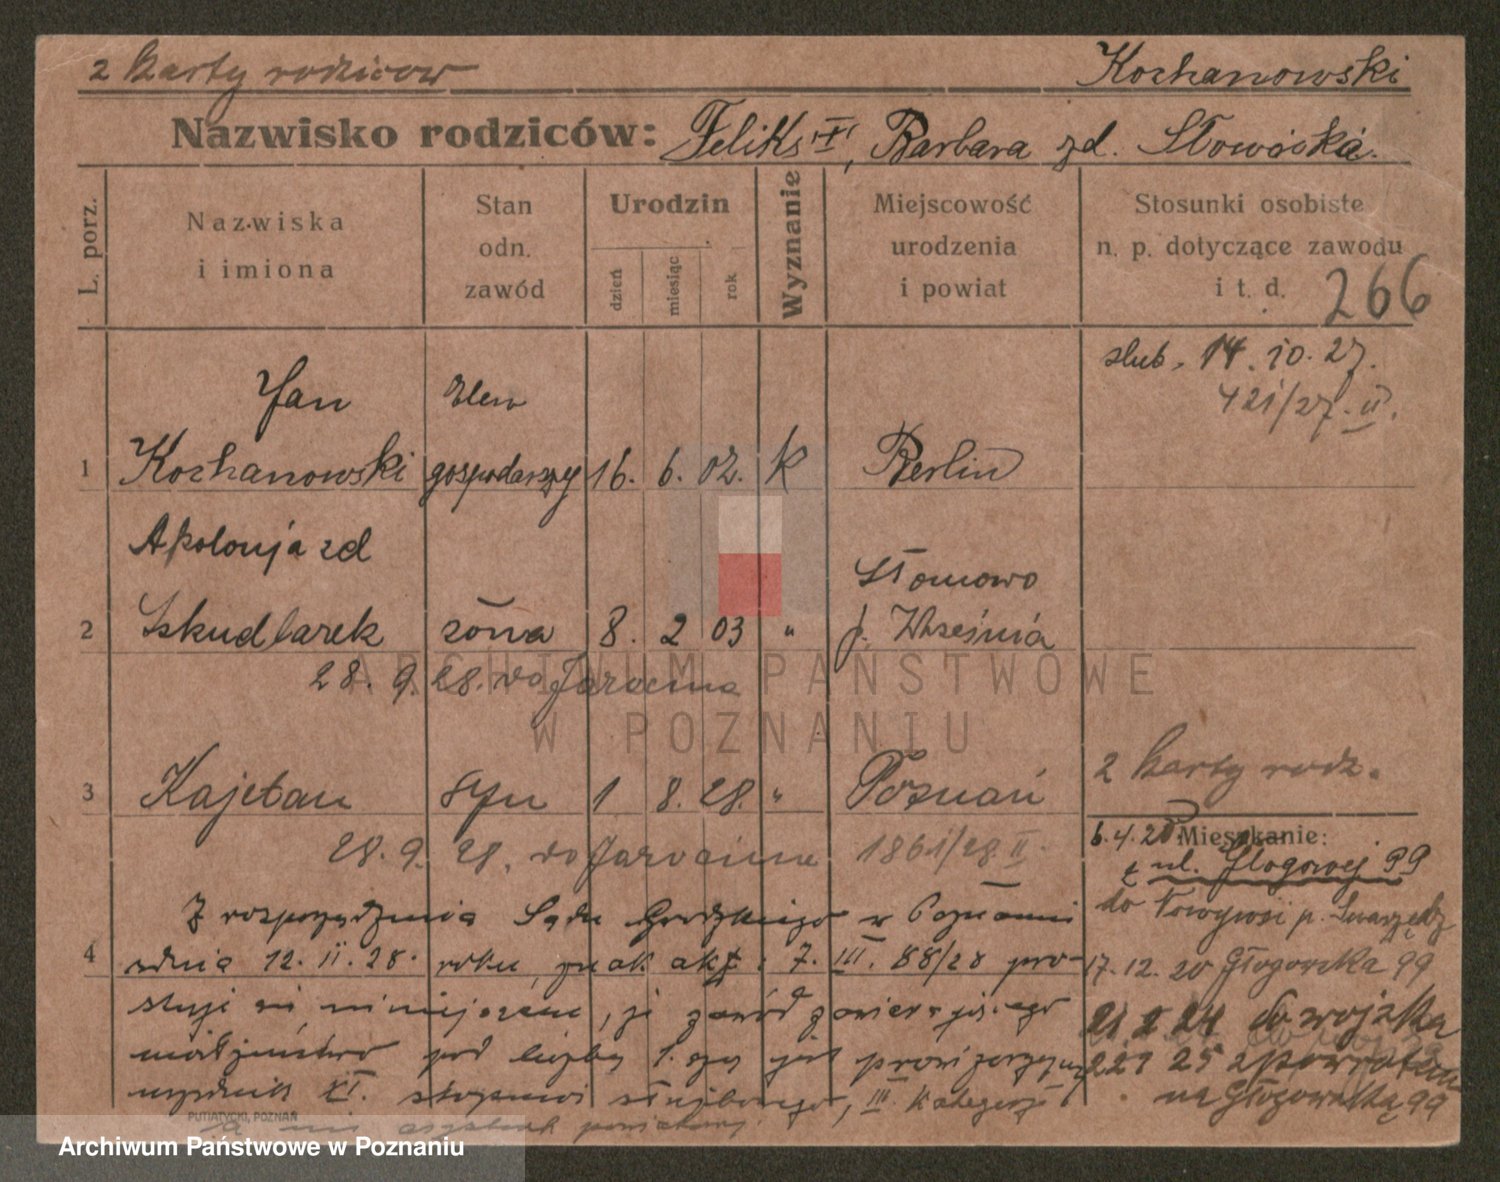 2 karty rodziców
Kochanowski
Nazwisko rodziców: Feliks "I", Barbara zd. Słowińska.
L. porz.
Nazwiska
i imiona
Stan
odn.
zawód
Urodzin
dzień
miesiąc
rok
Wyznanie
Miejscowość
urodzenia
i powiat
Stosunki osobiste
n. p. dotyczące zawodu
i t. d.
266
Jan
ślub. 14.10.27.
421/27. II.
1 Kochanowski gospodarczy 16. 6. 02. K Berlin
Apolonja zd
Słomowo
2 Szkudlarek żona 8. 2 03 " p. Września
28. 9. 28. do Jarocina
2 karty rodz.
3 Kajetan syn 1 8. 28. " Poznań
Mieszkanie:
28. 9. 28. do Jarocina 1861/28 II.
z ul. Głogowej 99
Z rozporządzenia Sądu Grodzkiego w Poznaniu
do Nowejwsi p. Swarzędz
4 z dnia 12. 11. 28. roku, znak akt: 7. III. 88/28 pro-
17.12.20 Głogowska 99
stuje się niniejszem, że zawód
do wojska
małżeństwo pod liczbą 1. jest
25 z powrotem
XI. służbowego, III. kategorji
na Głogowską 99
PUTIATYCKI, POZNAŃ
ARCHIWUM PAŃSTWOWE
W POZNANIU
Archiwum Państwowe w Poznaniu